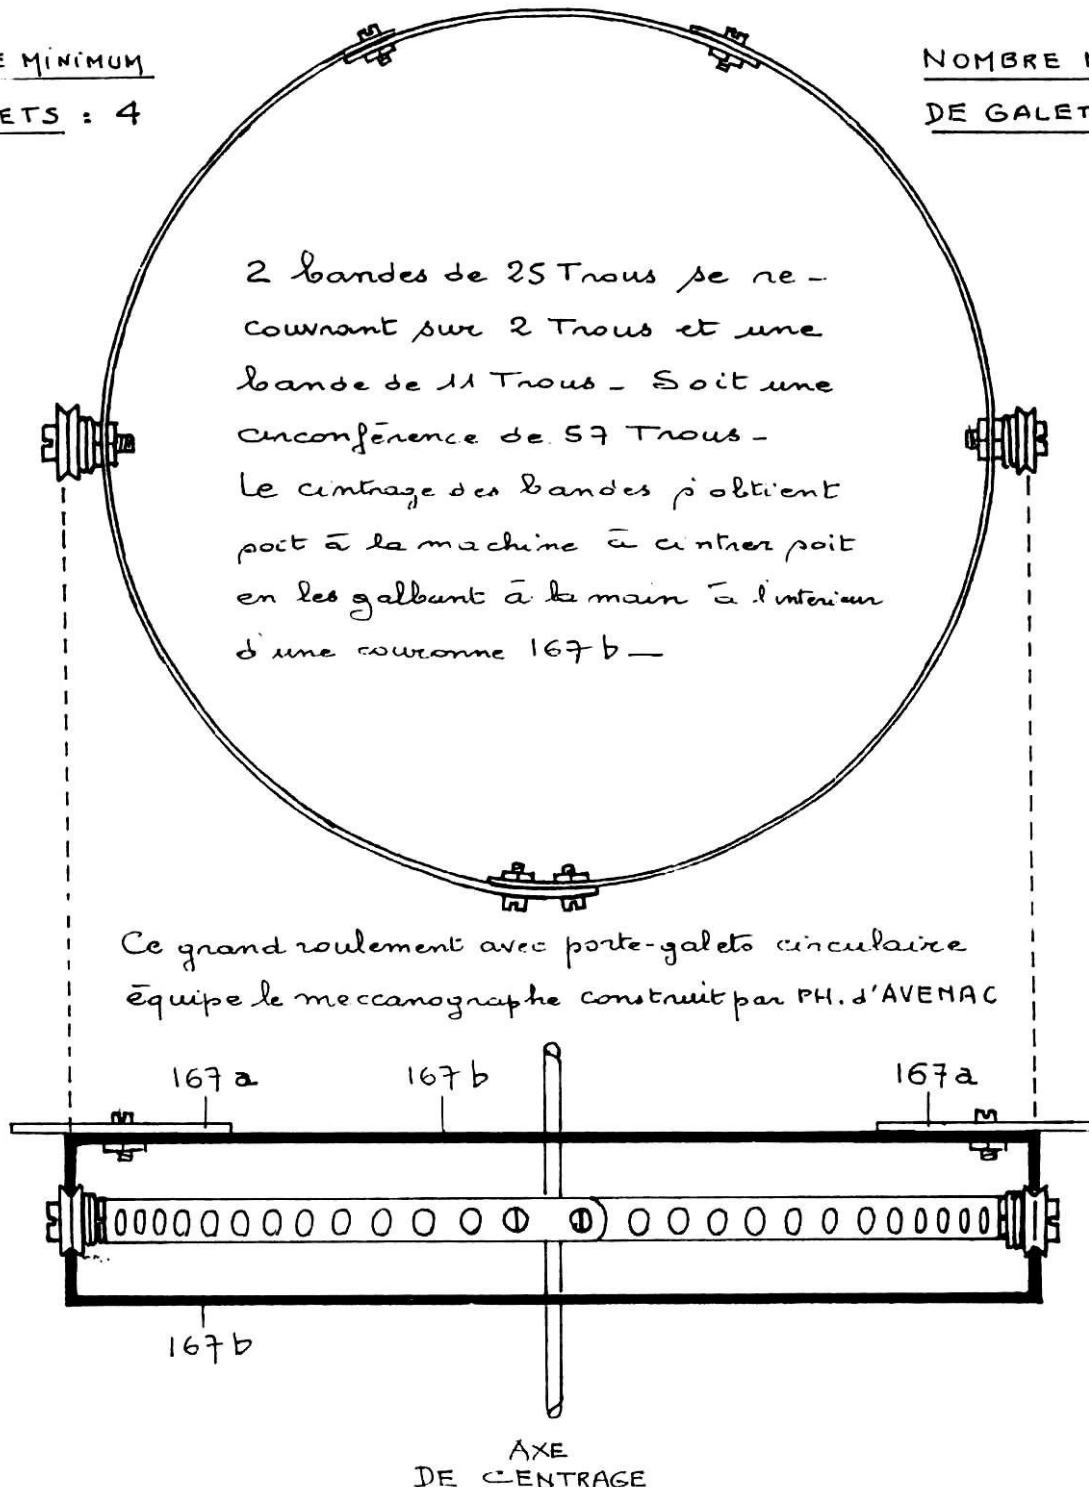 MINIMUM
ETS : 4
NOMBRE
DE GALET
2 bandes de 25 Trous se re-
couvrant sur 2 Trous et une
bande de 11 Trous - Soit une
circonférence de 57 Trous -
Le cintrage des bandes s'obtient
soit à la machine à cintrer soit
en les galbant à la main à l'interieur
d'une couronne 167 b —
Ce grand roulement avec porte-galets circulaire
équipe le meccanographe construit par PH. d'AVENAC
167 a
167 b
167 a
167 b
AXE
DE CENTRAGE